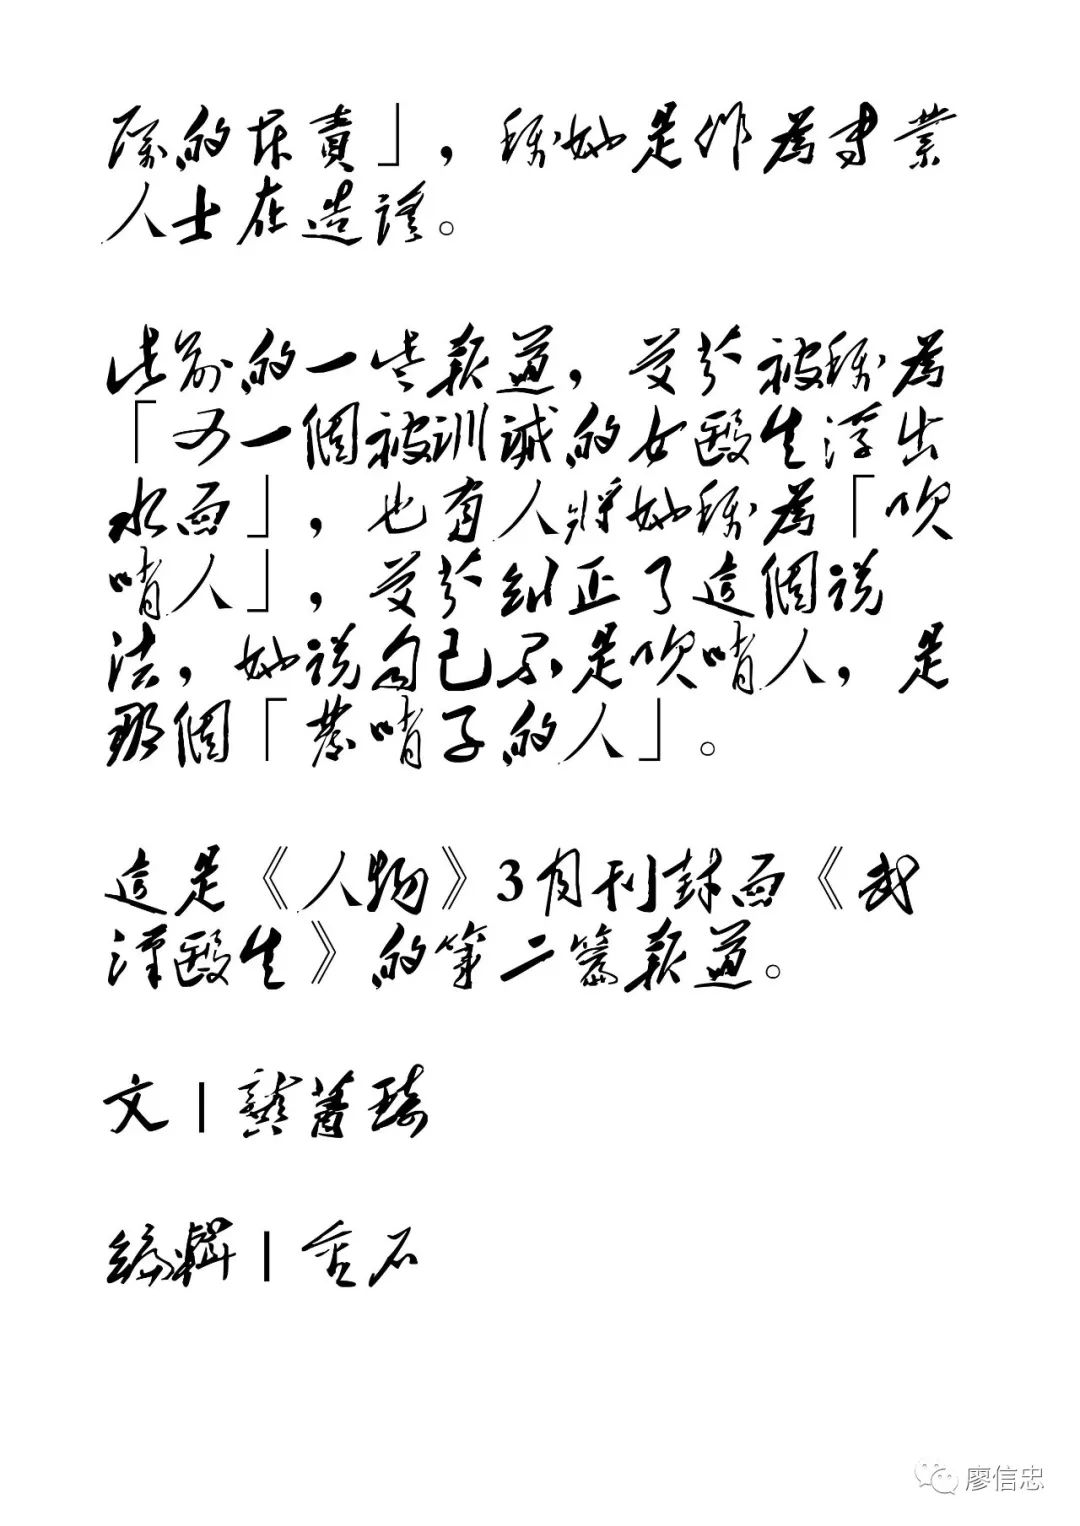 際的斥責」，稱她是作為專業
人士在造謠。
此前的一些報道，艾芬被稱為
「又一個被訓誡的女醫生浮出
水面」，也有人將她稱為「吹
哨人」，艾芬糾正了這個說
法，她說自己不是吹哨人，是
那個「發哨子的人」。
這是《人物》3月刊封面《武
漢醫生》的第二篇報道。
文丨龔菁琦
編輯丨金石
廖信忠